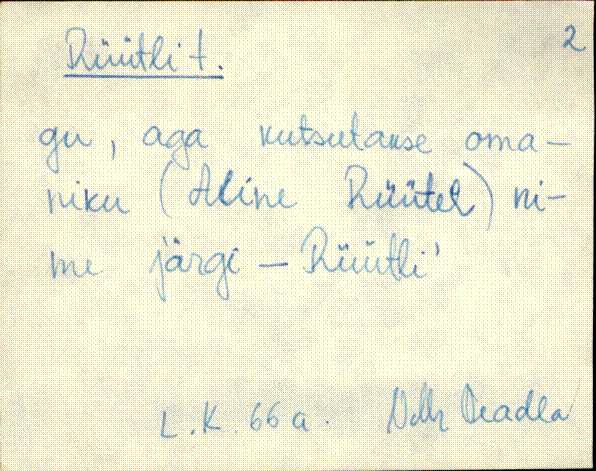 2
Rüütli t.
gu, aga kutsutakse oma-
niku (Aline Rüütel) ni-
me järgi – Rüütli'
L.K. 66 a.